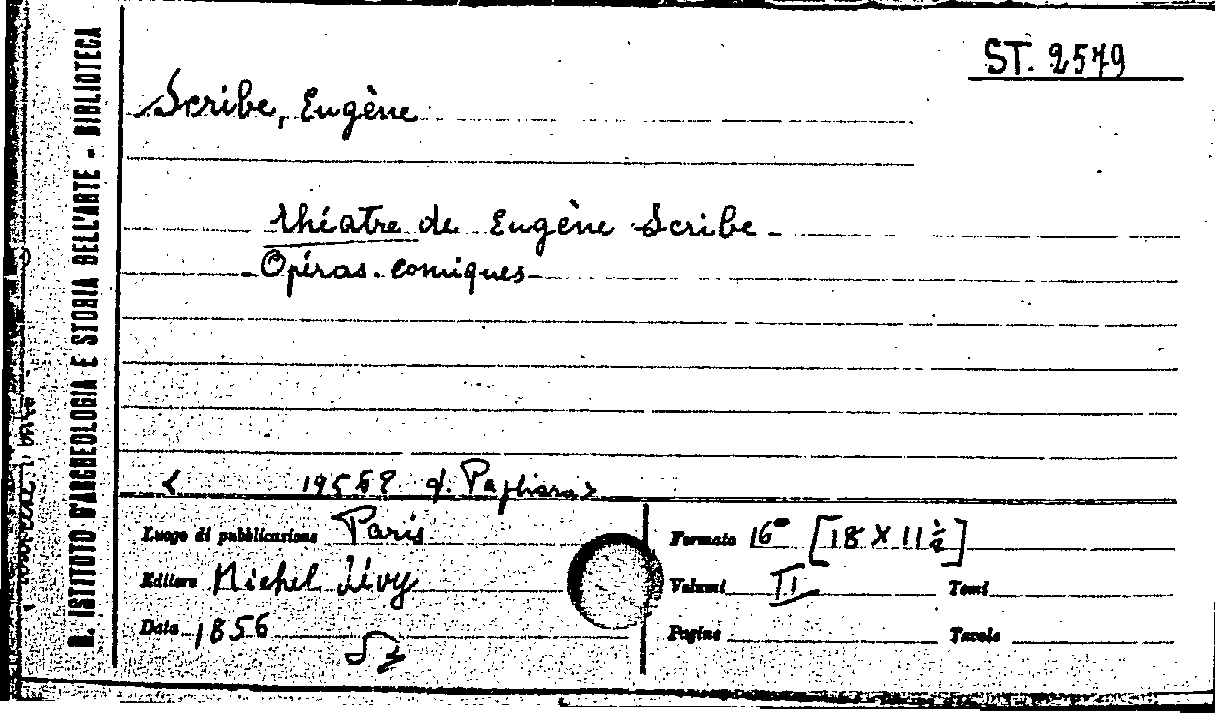 R. ISTITUTO D'ARCHEOLOGIA E STORIA DELL'ARTE - BIBLIOTECA
ST. 2579
Scribe, Eugène
théatre de Eugène Scribe -
- Opéras-comiques -
< 19568 d. Pagliara >
Luogo di pubblicazione Paris
Editore Michel Lévy
Data 1856
Formato 16° [18 X 11 ½]
Volumi II Tomi
Pagine Tavole